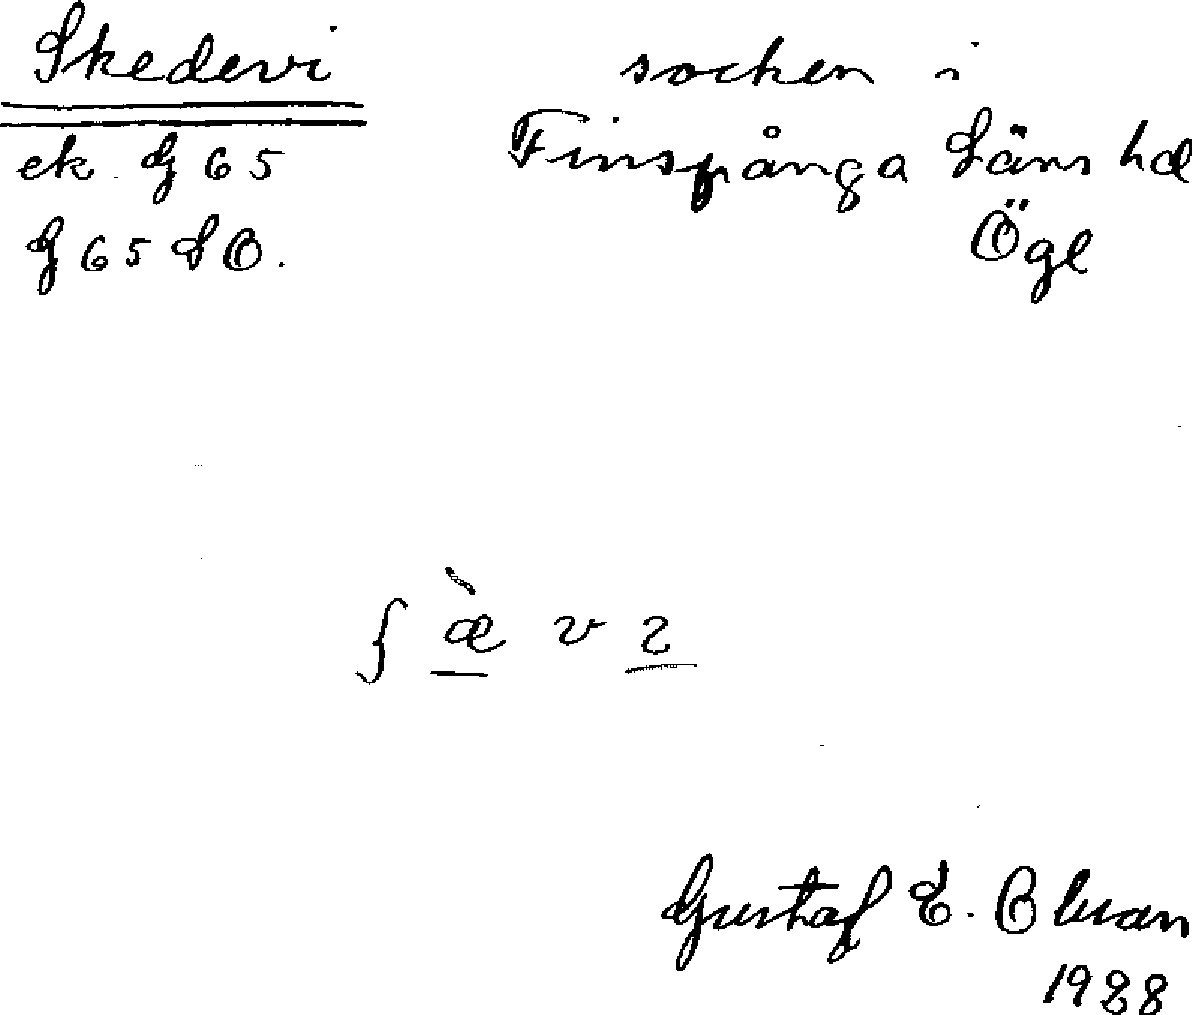 Skedevi socken i
ek. G 65 Finspånga Läns hd
G 65 SO. Ögl
ʃ æ̀ v ɿ
Gustaf E.
1928